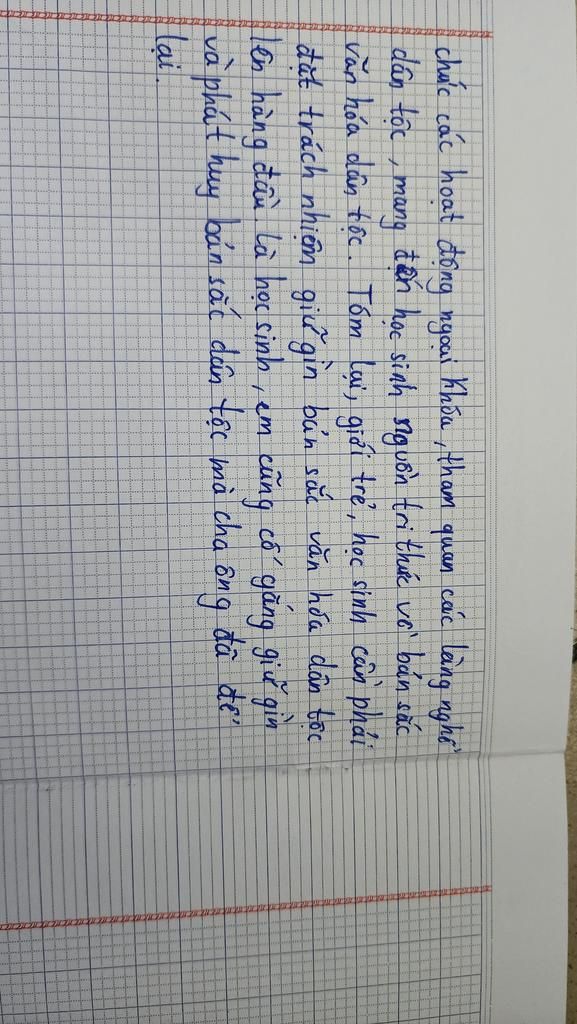 chức các hoạt động ngoại khóa, tham quan các làng nghề
dân tộc, mang đến học sinh nguồn tri thức về bản sắc
văn hóa dân tộc. Tóm lại, giới trẻ, học sinh cần phải
đặt trách nhiệm giữ gìn bản sắc văn hóa dân tộc
lên hàng đầu. Là học sinh, em cũng cố gắng giữ gìn
và phát huy bản sắc dân tộc mà cha ông đã để
lại.